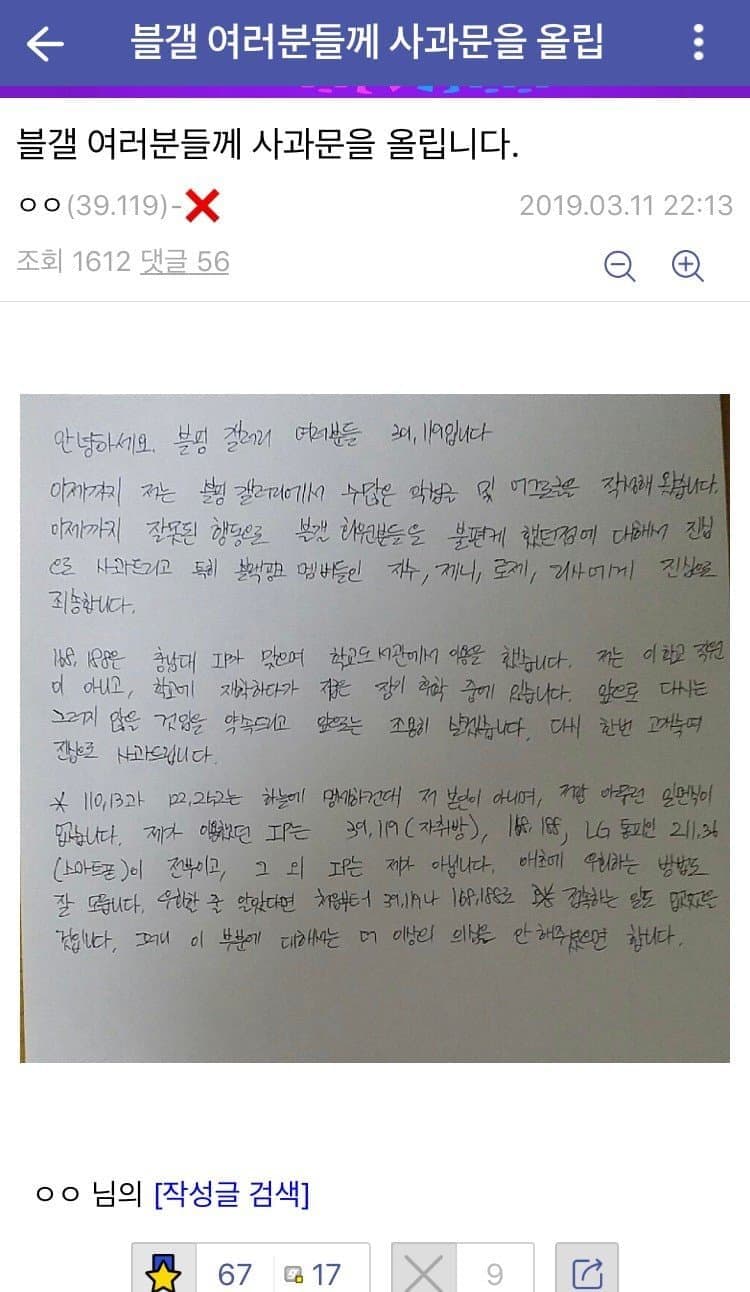 블갤 여러분들께 사과문을 올립
블갤 여러분들께 사과문을 올립니다.
ㅇㅇ(39.119)-❌
2019.03.11 22:13
조회 1612 댓글 56
안녕하세요. 블핑 갤러리 여러분들 39,119입니다
이제까지 저는 블핑 갤러리에서 수많은 악성글 및 어그로글을 작성해 왔습니다.
이제까지 잘못된 행동으로 블갤 회원분들을 불편케 했던점에 대해서 진심
으로 사과드리고 특히 블랙핑크 멤버들인 지수, 제니, 로제, 리사에게 진심으로
죄송합니다.
168, 188은 충남대 IP가 맞으며 학교도서관에서 이용을 했습니다. 저는 이 학교 직원
이 아니고, 학교에 재학하다가 지금은 장기 휴학 중에 있습니다. 앞으로 다시는
그러지 않을 것임을 약속드리고 앞으로는 조용히 살겠습니다. 다시 한번 고개숙여
진심으로 사과드립니다.
* 110,13과 122,252는 하늘에 맹세하건대 저 본인이 아니며, 저랑 아무런 일면식이
없습니다. 제가 이용했던 IP는 39,119(자취방), 168,188, LG 통피인 211,36
(스마트폰)이 전부이고, 그 외 IP는 제가 아닙니다. 애초에 우회하는 방법도
잘 모릅니다. 우회할 줄 알았다면 처음부터 39,119나 168,188로 접속하는 일도 없었을
것입니다. 그러니 이 부분에 대해서는 더 이상의 의심을 안 해주셨으면 합니다.
ㅇㅇ 님의 [작성글 검색]
67 17 9